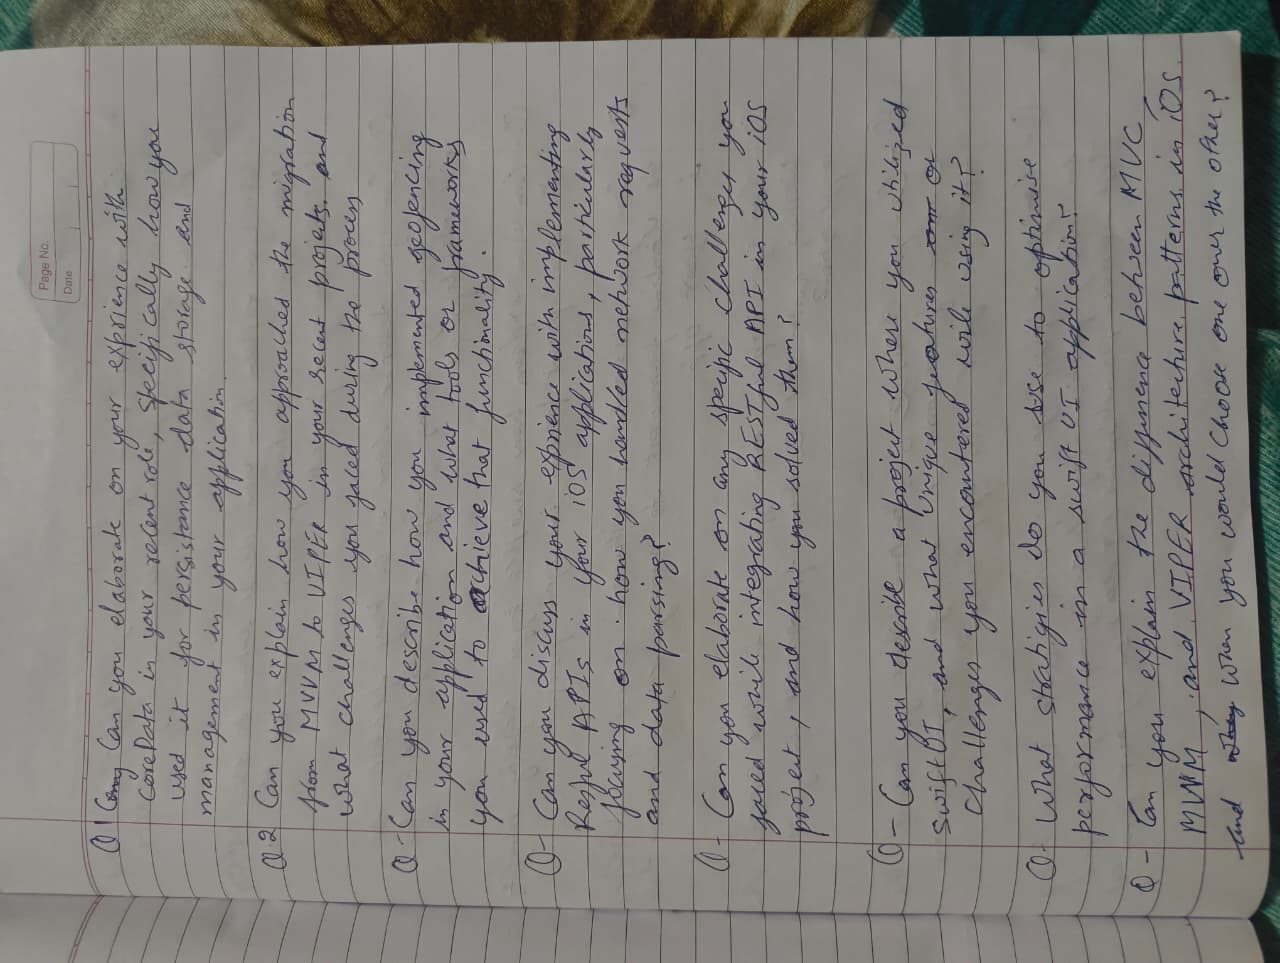 Page No.
Date
Q1 Can you elaborate on your exprience with
CoreData in your recent role, specifically how you
used it for persistance data storage and
management in your application.
Q2 Can you explain how you approached the migration
from MVVM to VIPER in your recent projets. and
what challenges you faced during the process
Q- Can you describe how you implemented geofencing
in your application and what tools or frameworks
you used to achieve that functionality.
Q- Can you discuss your exprience with implementing
Restful APIs in your iOS applications, particularly
focusing on how you handled network requests
and data parssing?
Q- Can you elaborate on any specific challenges you
faced while integrating RESTful API in your iOS
project, and how you solved them?
Q- Can you describe a project where you utilized
SwiftUI, and what unique features or
challenges you encountered while using it?
Q. What stratigies do you use to optimise
performance in a swift UI application?
Q- Can you explain the diffrence between MVC
MVVM, and VIPER architecture patterns in iOS.
and when you would choose one over the other?